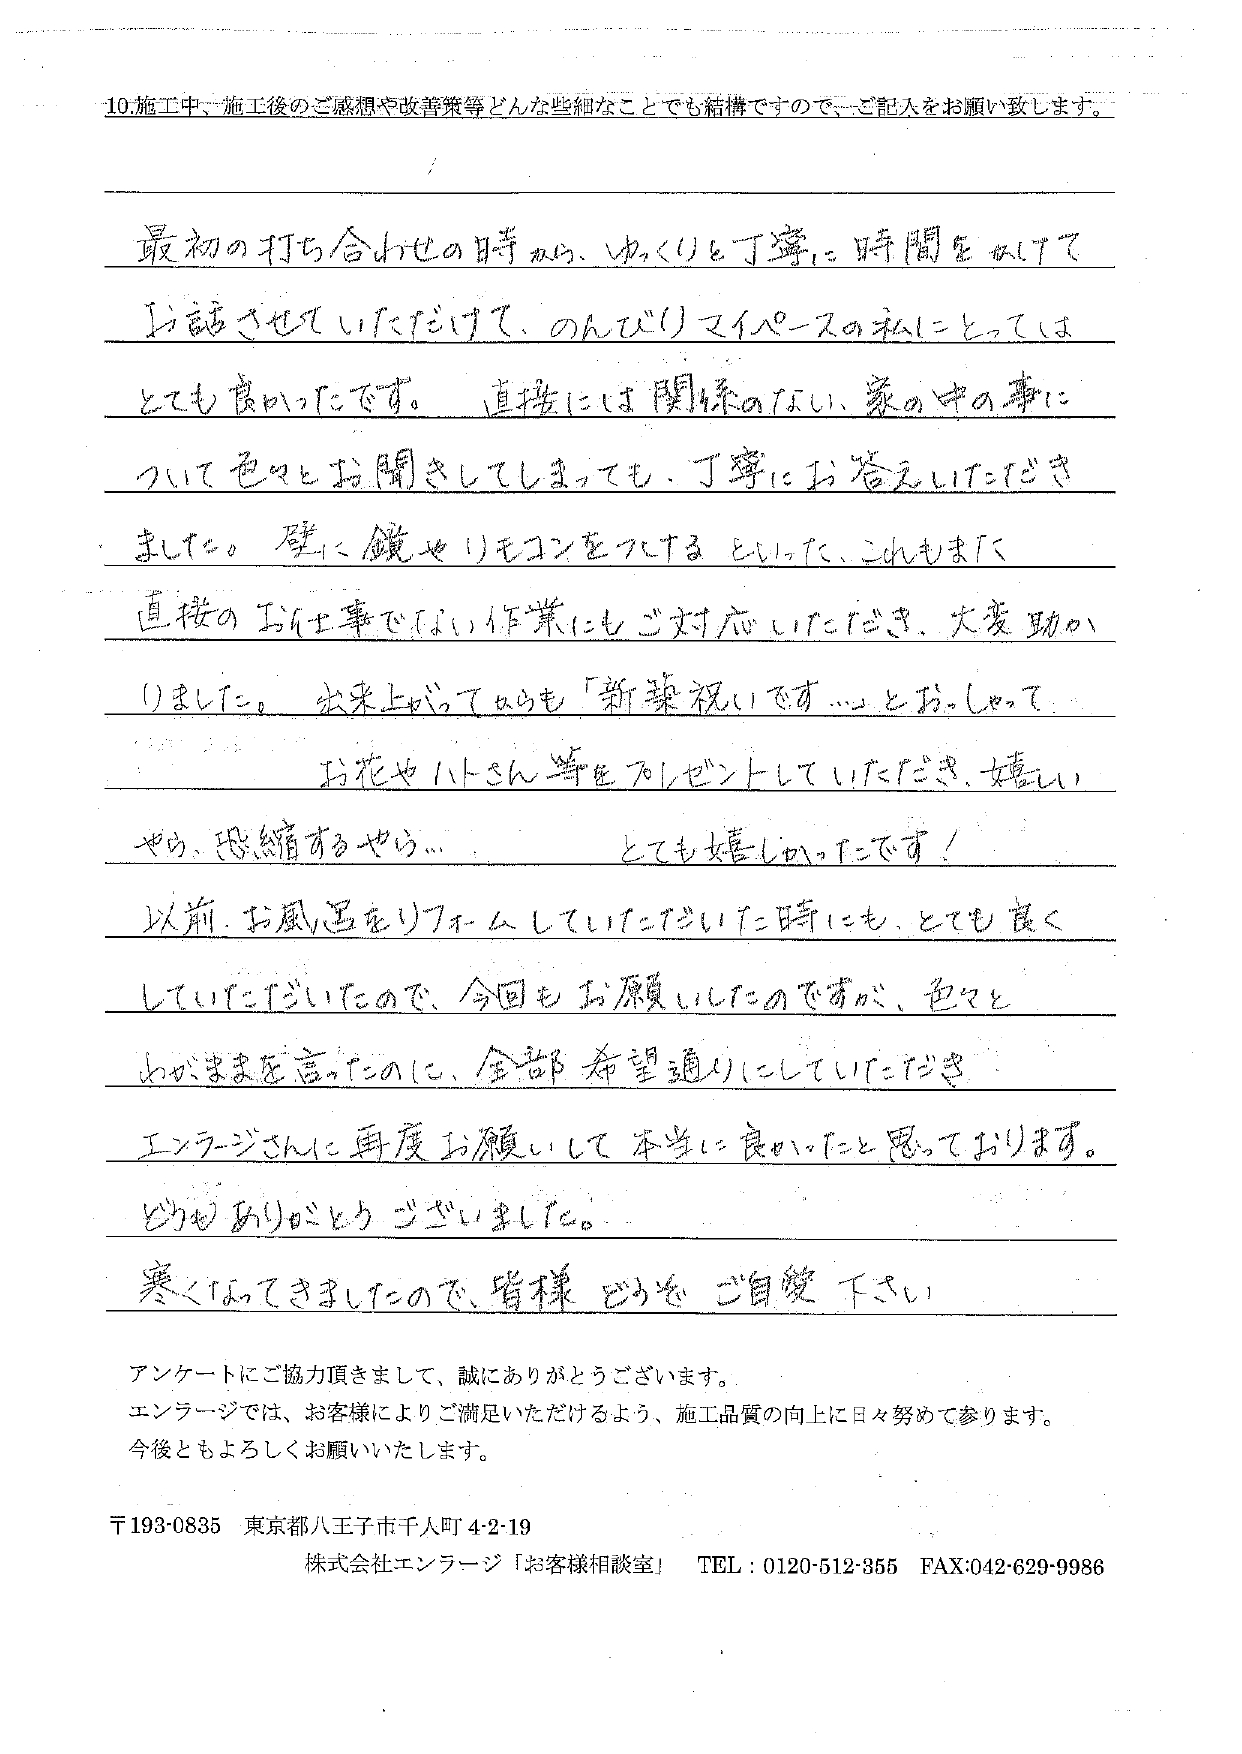 10.施工中、施工後のご感想や改善策等どんな些細なことでも結構ですので、ご記入をお願い致します。
最初の打ち合わせの時から、ゆっくりと丁寧に時間をかけて
お話させていただけて、のんびりマイペースの私にとっては
とても良かったです。 直接には関係のない、家の中の事に
ついて色々とお聞きしてしまっても、丁寧にお答えいただき
ました。 壁に鏡やリモコンをつけるといった、これもまた
直接のお仕事でない作業にもご対応いただき、大変助か
りました。 出来上がってからも「新築祝いです…」とおっしゃって
お花やハトさん等をプレゼントしていただき、嬉しい
やら、恐縮するやら… とても嬉しかったです!
以前、お風呂をリフォームしていただいた時にも、とても良く
していただいたので、今回もお願いしたのですが、色々と
わがままを言ったのに、全部希望通りにしていただき
エンラージさんに再度お願いして本当に良かったと思っております。
どうもありがとうございました。
寒くなってきましたので、皆様どうぞご自愛下さい
アンケートにご協力頂きまして、誠にありがとうございます。
エンラージでは、お客様によりご満足いただけるよう、施工品質の向上に日々努めて参ります。
今後ともよろしくお願いいたします。
〒193-0835 東京都八王子市千人町4-2-19
株式会社エンラージ「お客様相談室」 TEL:0120-512-355 FAX:042-629-9986